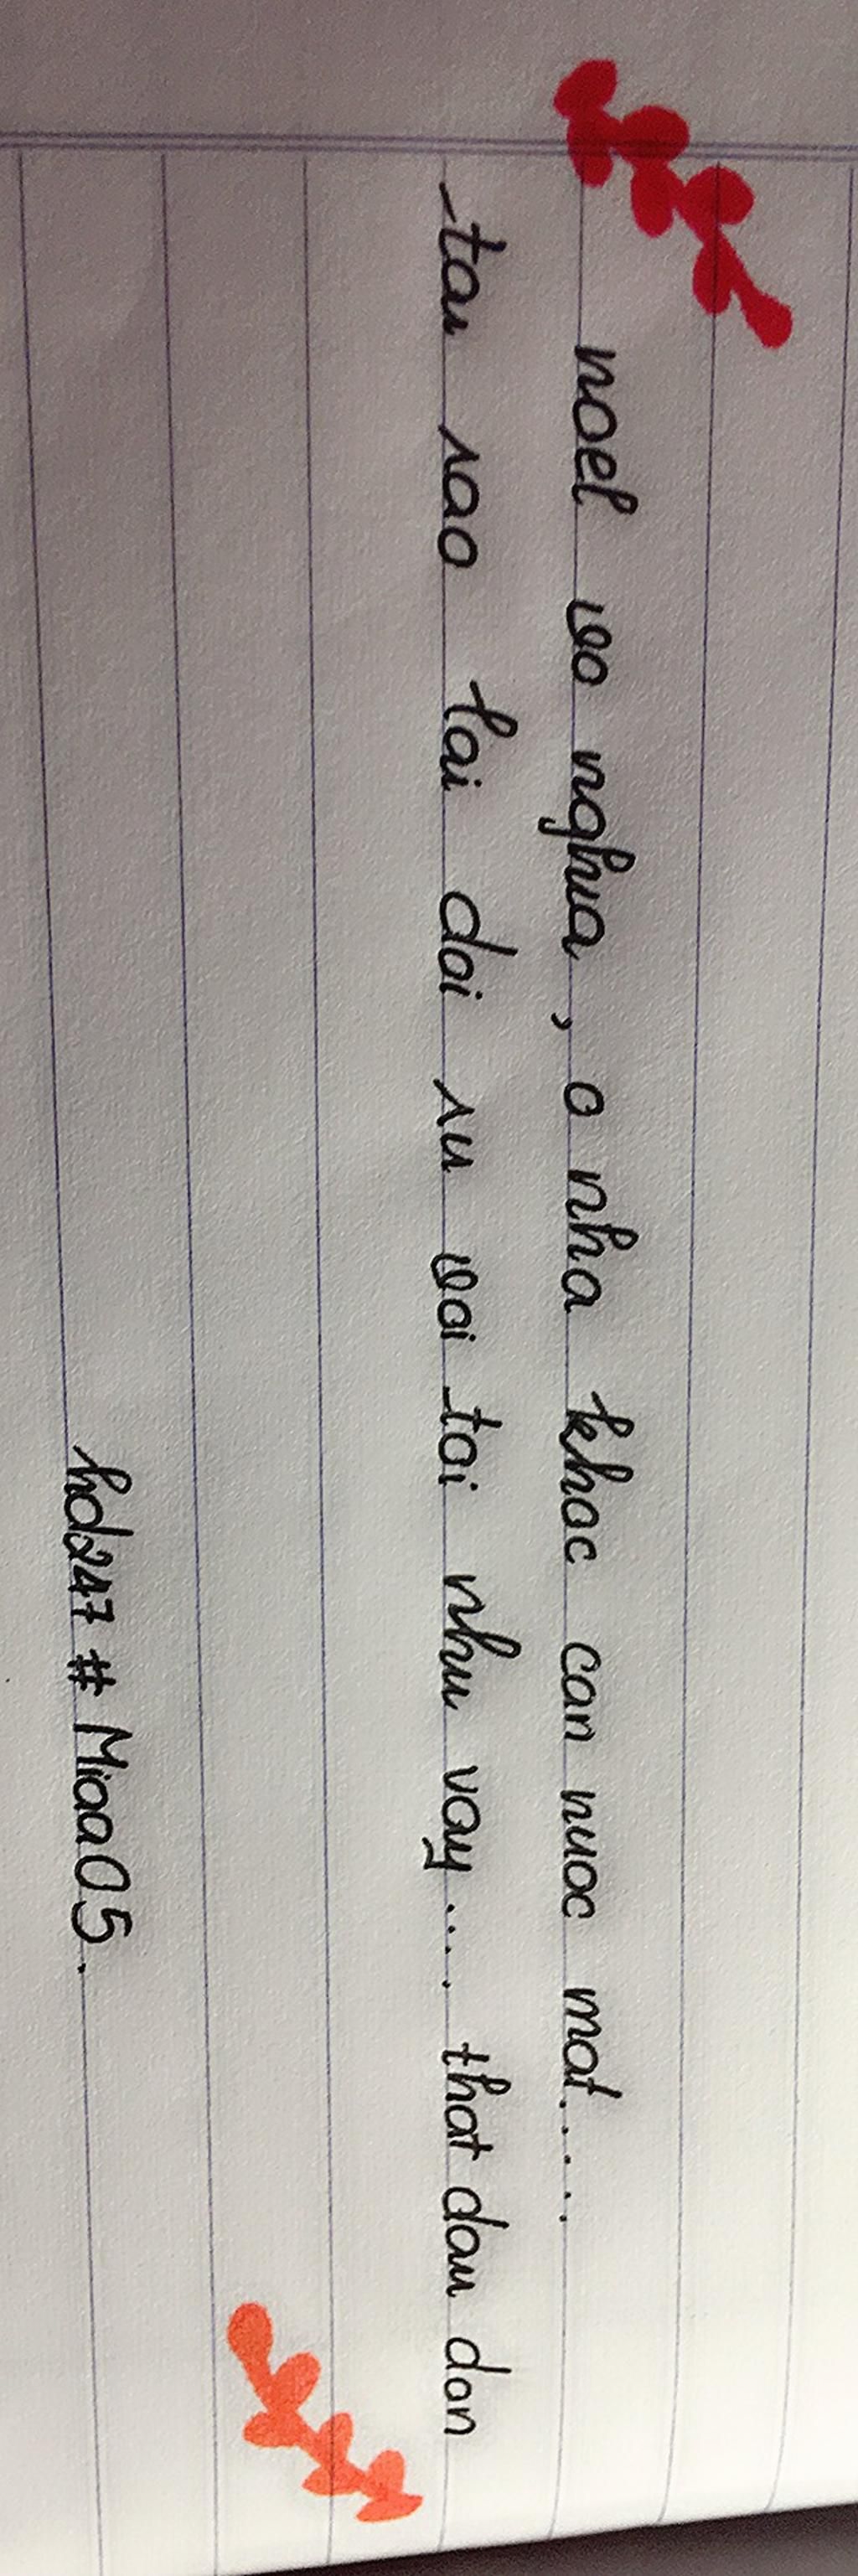 noel vo nghia, o nha khoc can nuoc mat.....
tai sao lai doi su voi toi nhu vay..... that dau don
hd247 # Miaa05.